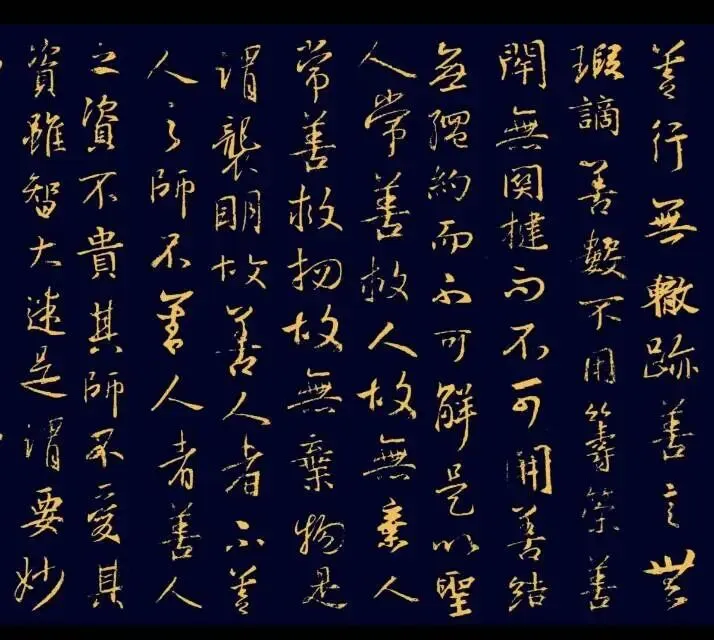 善行無轍跡善言無
瑕謫善數不用籌策善
閉無関楗而不可開善結
無繩約而不可解是以聖
人常善救人故無棄人
常善救物故無棄物是
謂襲明故善人者不善
人之師不善人者善人
之資不貴其師不愛其
資雖智大迷是謂要妙